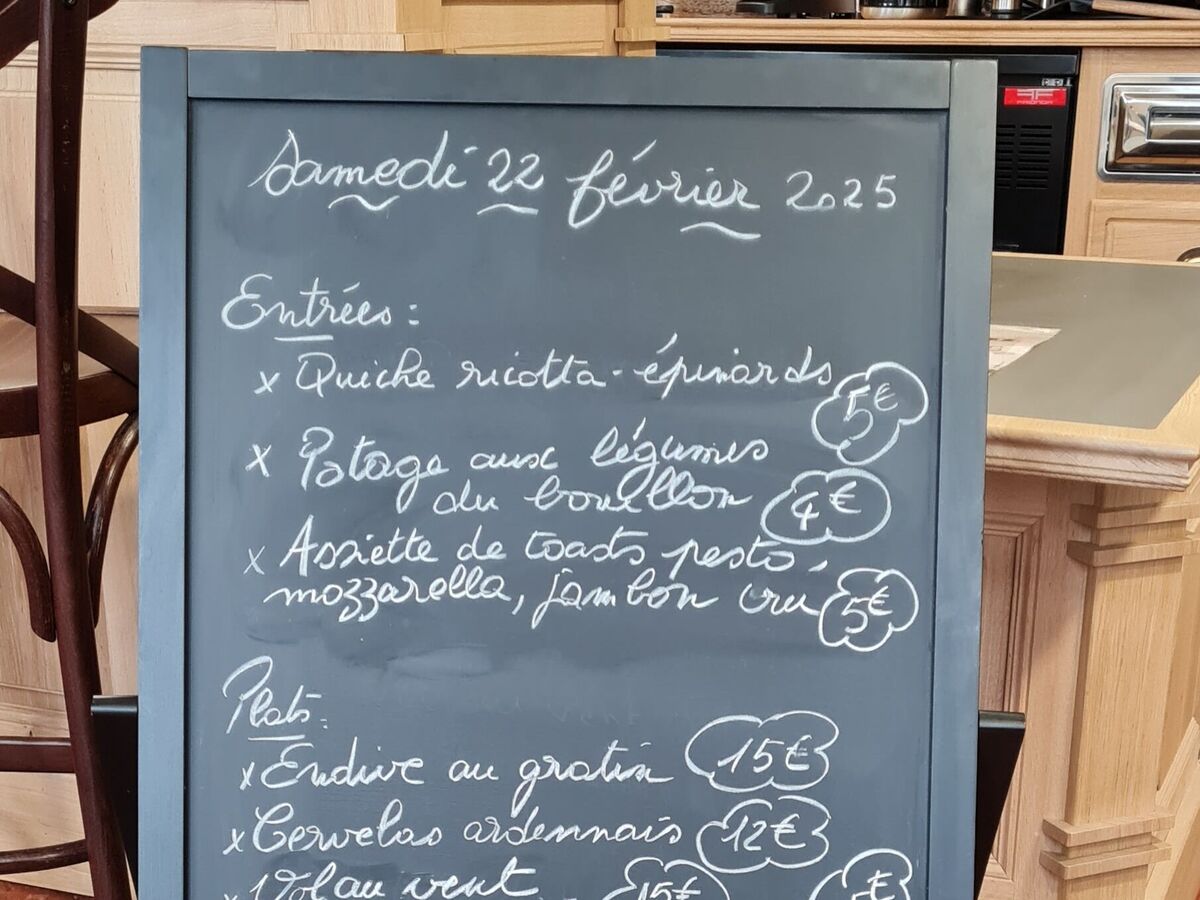 Samedi 22 février 2025
Entrées :
x Quiche ricotta - épinards 5€
x Potage aux légumes
du bouillon 4€
x Assiette de toasts pesto,
mozzarella, jambon cru 5€
Plats :
x Endive au gratin 15€
x Cervelas ardennais 12€
x Vol au vent 15€